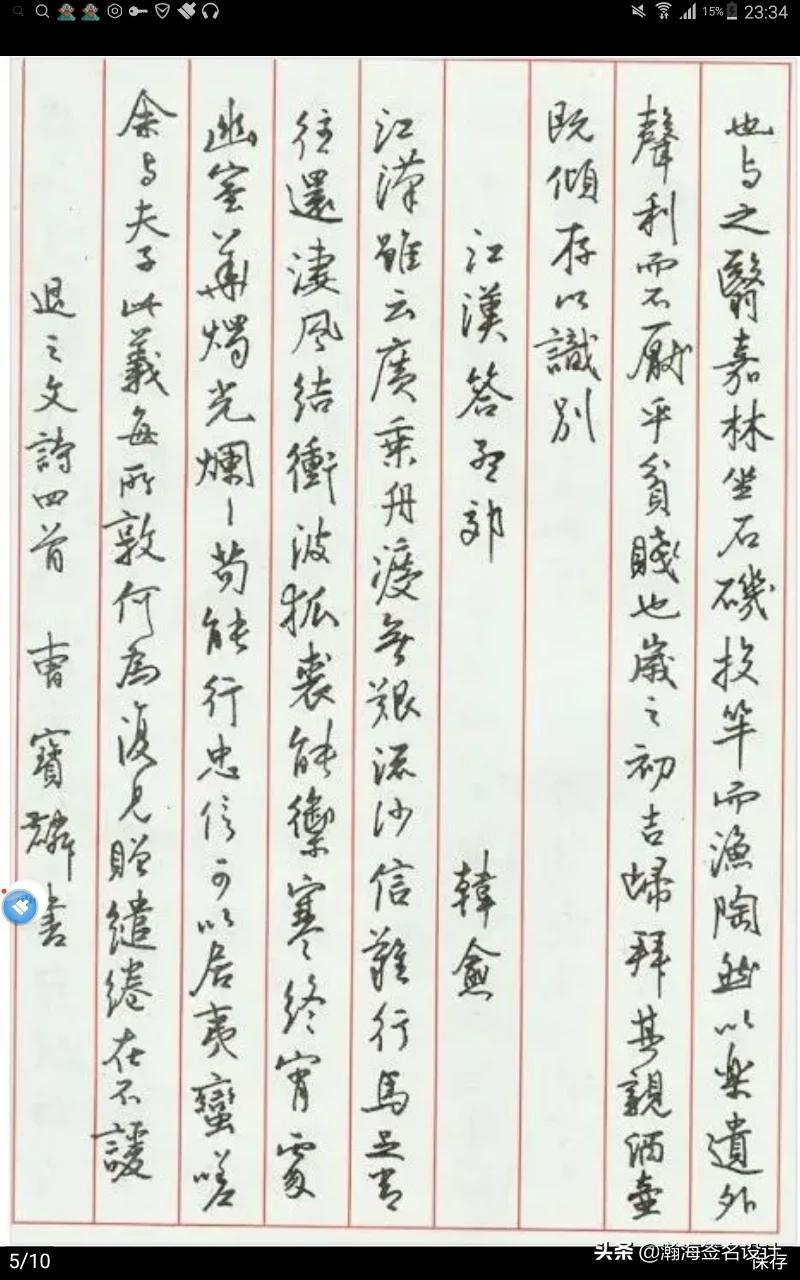 15% 23:34
也与之翳嘉林坐石磯投竿而漁陶然以樂遺外
聲利而不厭乎貧賤也歲之初吉歸拜其親酒壺
既傾序以識別
江漢答孟郊 韓愈
江漢雖云廣乘舟渡無艱流沙信難行馬足常
往還淒風結衝波狐裘能禦寒終宵處
幽室華燭光爛丶苟能行忠信可以居夷蠻嗟
余与夫子此義每所敦何為復見贈繾綣在不諼
退之文詩四首 曹寶麟書
5/10
头条 @瀚海签名设计
保存